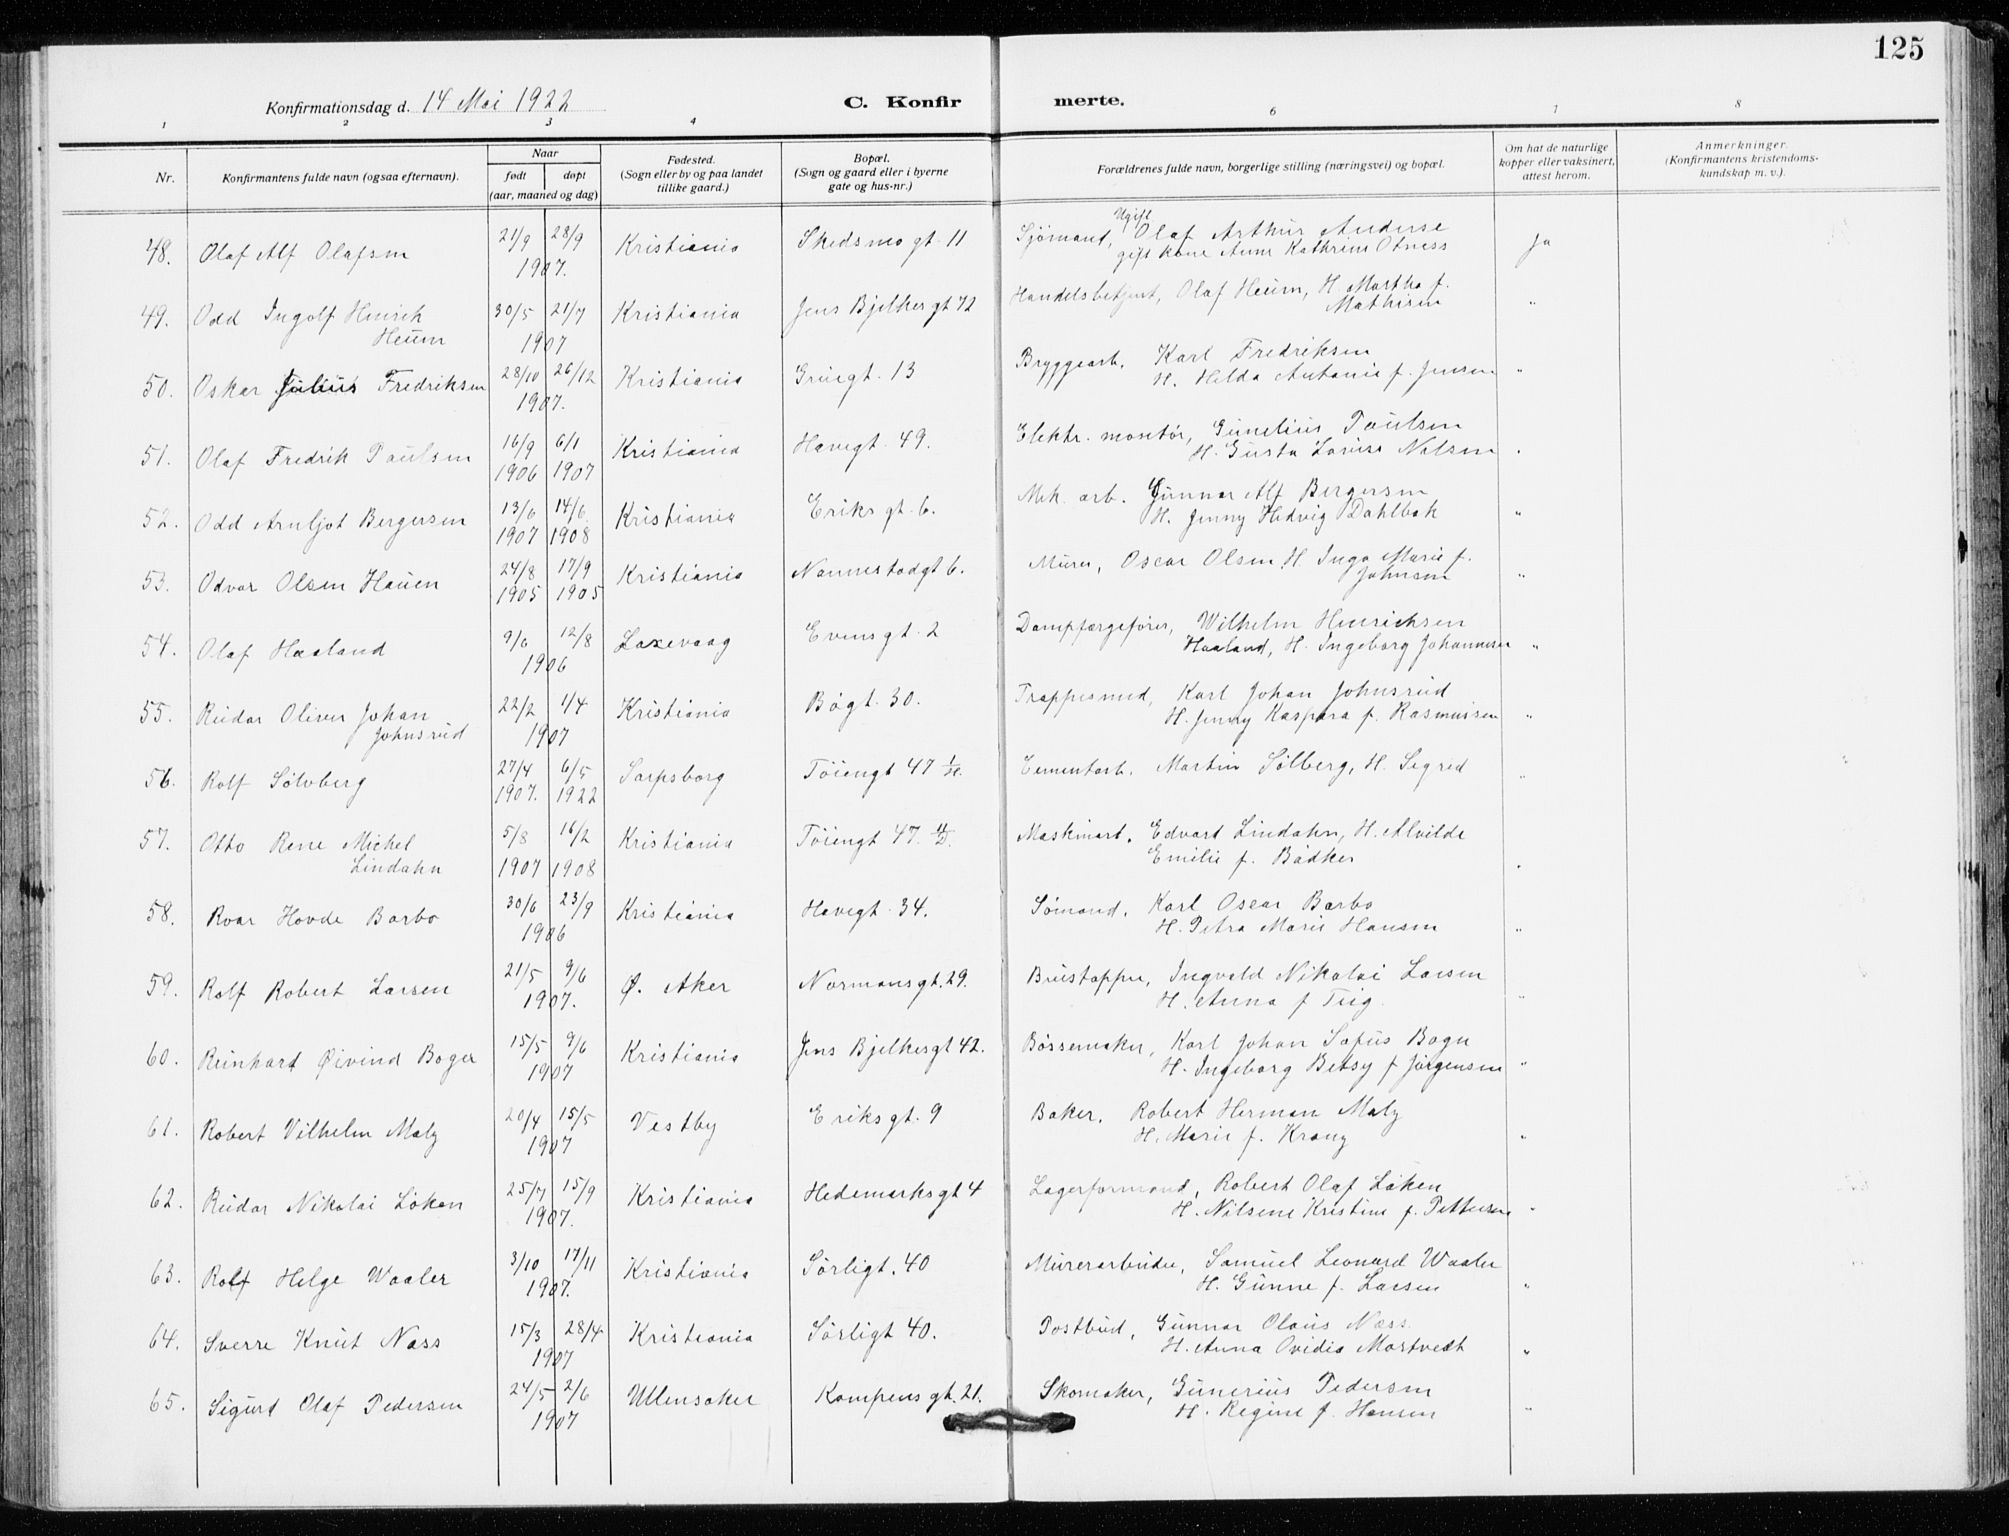 125
Konfirmationsdag d. 14 Mai 1922
C. Konfir merte.
1 2 3 4 6 7 8
Nr.
Konfirmantens fulde navn (ogsaa efternavn).
Naar
født døpt
(aar, maaned og dag)
Fødested.
(Sogn eller by og paa landet
tillike gaard.)
Bopæl.
(Sogn og gaard eller i byerne
gate og hus-nr.)
Forældrenes fulde navn, borgerlige stilling (næringsvei) og bopæl.
Om hat de naturlige
kopper eller vaksinert,
attest herom.
Anmerkninger.
(Konfirmantens kristendoms-
kundskap m. v.).
48. Olaf Alf Olafsen 21/9 28/9 Kristiania Skedsmogt. 11 Sjömand, Ugift Olaf Arthur Anderse ja
1907. gift kone Anne Kathrine Otness
49. Odd Ingolf Hinrik 30/5 21/7 Kristiania Jens Bjelkesgt 72 Handelsbetjent, Olaf Heum, H. Martha f. "
Heum 1907 Mathisen
50. Oskar Julius Fredriksen 28/10 26/12 Kristiania Grünsgt. 13 Bryggearb. Karl Fredriksen
1907. H. Hilda Antonie f. Jensen "
51. Olaf Fredrik Paulsen 16/9 6/1 Kristiania Havegt. 49. Elektr. montör, Gunelius Paulsen
1906 1907 H. Gusta Lovise Nilsen "
52. Odd Arnljot Bergersen 13/6 14/6 Kristiania Eriks gt. 6. Mek. arb. Gunnar Alf Bergersen
1907 1908 H. Jenny Hedvig Dahlbak "
53. Odvar Olsen Hauen 24/8 17/9 Kristiania Nannestadgt 6. Murer, Oscar Olsen, H. Inga Marie f.
1905 1905 Johnsen "
54. Olaf Haaland 9/6 12/8 Laxevaag Evensgt. 2 Dampfærgefører, Wilhelm Henrichsen
1906 Haaland, H. Ingeborg Johannesen "
55. Reidar Oliver Johan 22/2 1/4 Kristiania Bøgt. 30. Trappesmed, Karl Johan Johnsrud
Johnsrud 1907 H. Jenny Kaspara f. Rasmussen "
56. Rolf Sölvberg 27/4 6/5 Sarpsborg Töiengt 47 1/H. Cementarb. Martin Sölberg, H. Sigrid
1907. 1922 "
57. Otto Rene Michel 5/8 16/2 Kristiania Töiengt 47. Maskinarb. Edvard Lindahn, H. Alvilde
Lindahn 1907 1908 Emilie f. Bödker "
58. Roar Hovde Barbo 30/6 23/9 Kristiania Havegt. 34. Sömand. Karl Oscar Barbo
1906 H. Petra Marie Hansen "
59. Rolf Robert Larsen 21/5 9/6 Ø. Aker Normansgt. 29. Brustapper, Ingvald Nikolai Larsen
1907. H. Anna f Tiig. "
60. Reinhard Øivind Boger 15/5 9/6 Kristiania Jens Bjelkesgt 42. Bössemaker, Karl Johan Sofus Boger
1907 H. Ingeborg Betsy f Jörgensen "
61. Robert Vilhelm Malz 20/4 15/5 Vestby Eriksgt. 9 Baker. Robert Herman Malz
1907 H. Marie f. Krang "
62. Reidar Nikolai Löken 25/7 15/9 Kristiania Hedemarksgt 4 Lagerformand, Robert Olaf Löken
1907. H. Nilsine Kristine f. Pettersen "
63. Rolf Helge Waaler 3/10 17/11 Kristiania Sörligt. 40 Murerarbeider, Samuel Leonard Waaler
1907. H. Gunne f. Larsen "
64. Sverre Knut Næss 15/3 28/4 Kristiania Sörligt 40. Postbud, Gunnar Olaus Næss.
1907 H. Anna Ovidia Mortvedt "
65. Sigurd Olaf Pedersen 24/5 2/6 Ullensaker Kampens gt. 21. Skomaker, Gunerius Pedersen
1907 H. Regine f. Hansen "